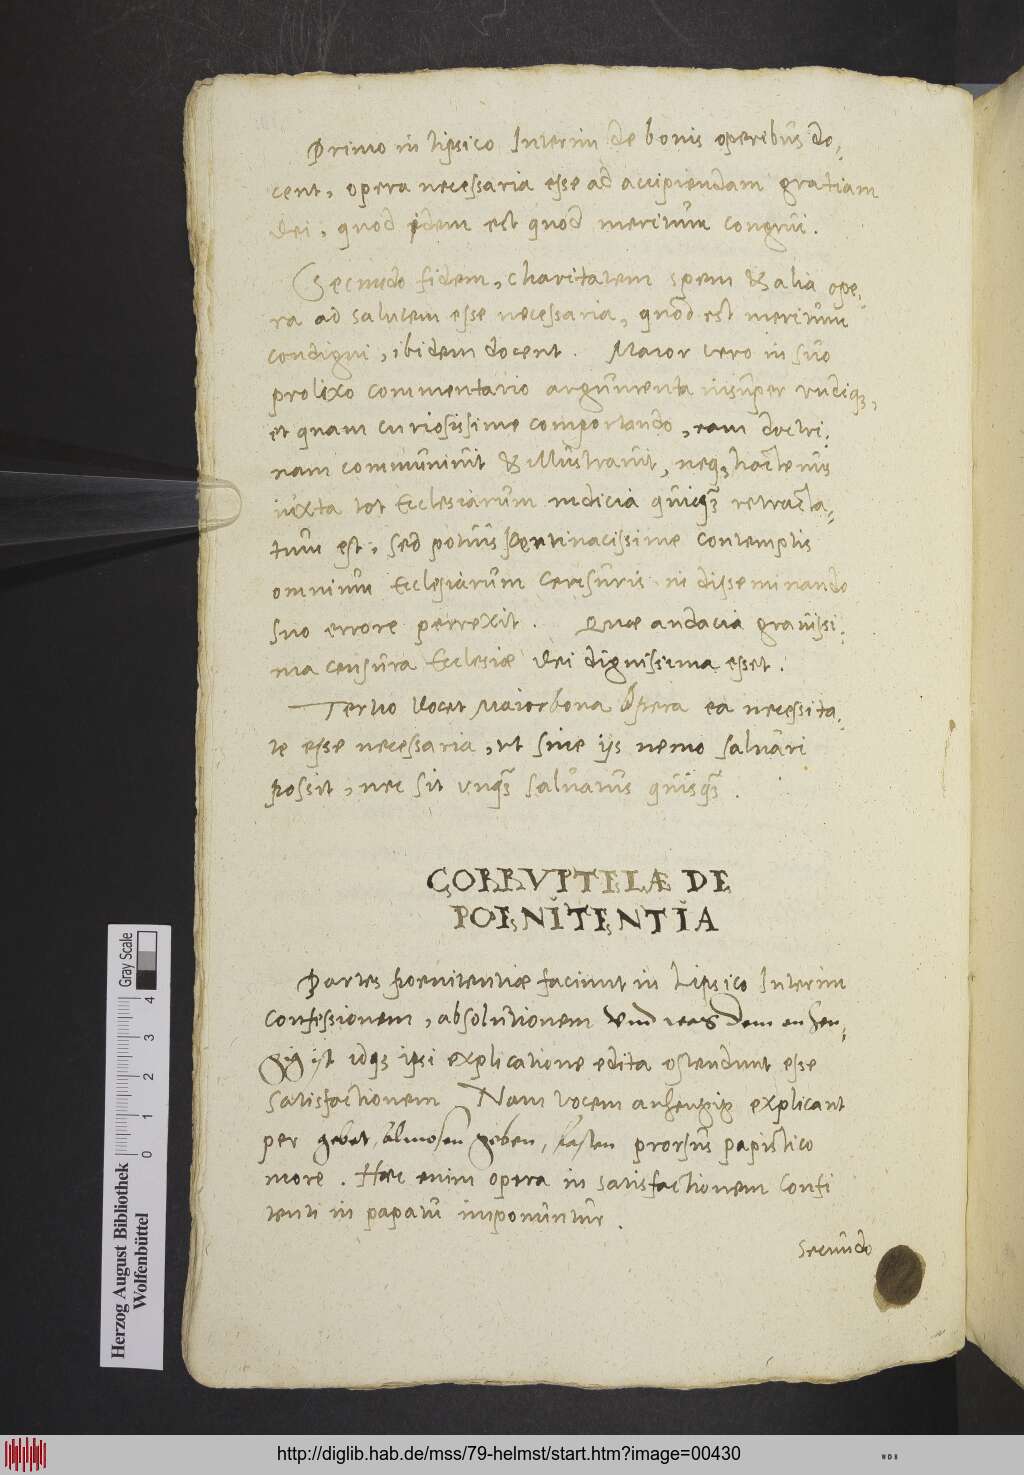 Primo in Lipsico Interim de bonis operibus do,
cent, opera necessaria esse ad accipiendam gratiam
Dei, quod idem est quod meritum congrui.
Secundo fidem, charitatem spem & alia ope,
ra ad salutem esse necessaria, quod est meritum
condigni, ibidem docent. Maior vero in suo
prolixo commentario argumenta insuper undiq;,
et quam curiosissime comportando, eam doctri,
nam communivit & illustravit, neq; hactenus
iuxta tot Ecclesiarum iudicia quicq̃ retracta,
tum est, sed potius pertinacissime contemptis
omnium Ecclesiarum censuris in disseminando
suo errore perrexit. Quae audacia gravissi,
ma censura Ecclesiæ Dei dignissima esset.
Tertio docet Maior bona Opera ea necessita,
te esse necessaria, ut sine ijs nemo salvari
possit, nec sit unq̃ salvatus quisq̃.
CORRVPTELÆ DE
POENITENTIA
Partes poenitentiæ faciunt in Lipsico Interim
confessionem, absolutionem vnd was dem anhen,
gig ist idq; ipsi explicatione edita ostendunt esse
satisfactionem Nam vocem anhengig explicant
per gebet, almosen geben, fasten prorsus papistico
more. Hæc enim opera in satisfactionem confi
tenti in papatu imponuntur.
secundo
Herzog August Bibliothek
Wolfenbüttel
0 1 2 3 4
Gray Scale
http://diglib.hab.de/mss/79-helmst/start.htm?image=00430